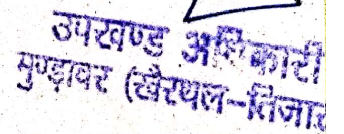 उपखण्ड अधिकारी
मुण्डावर (खैरथल-तिजार